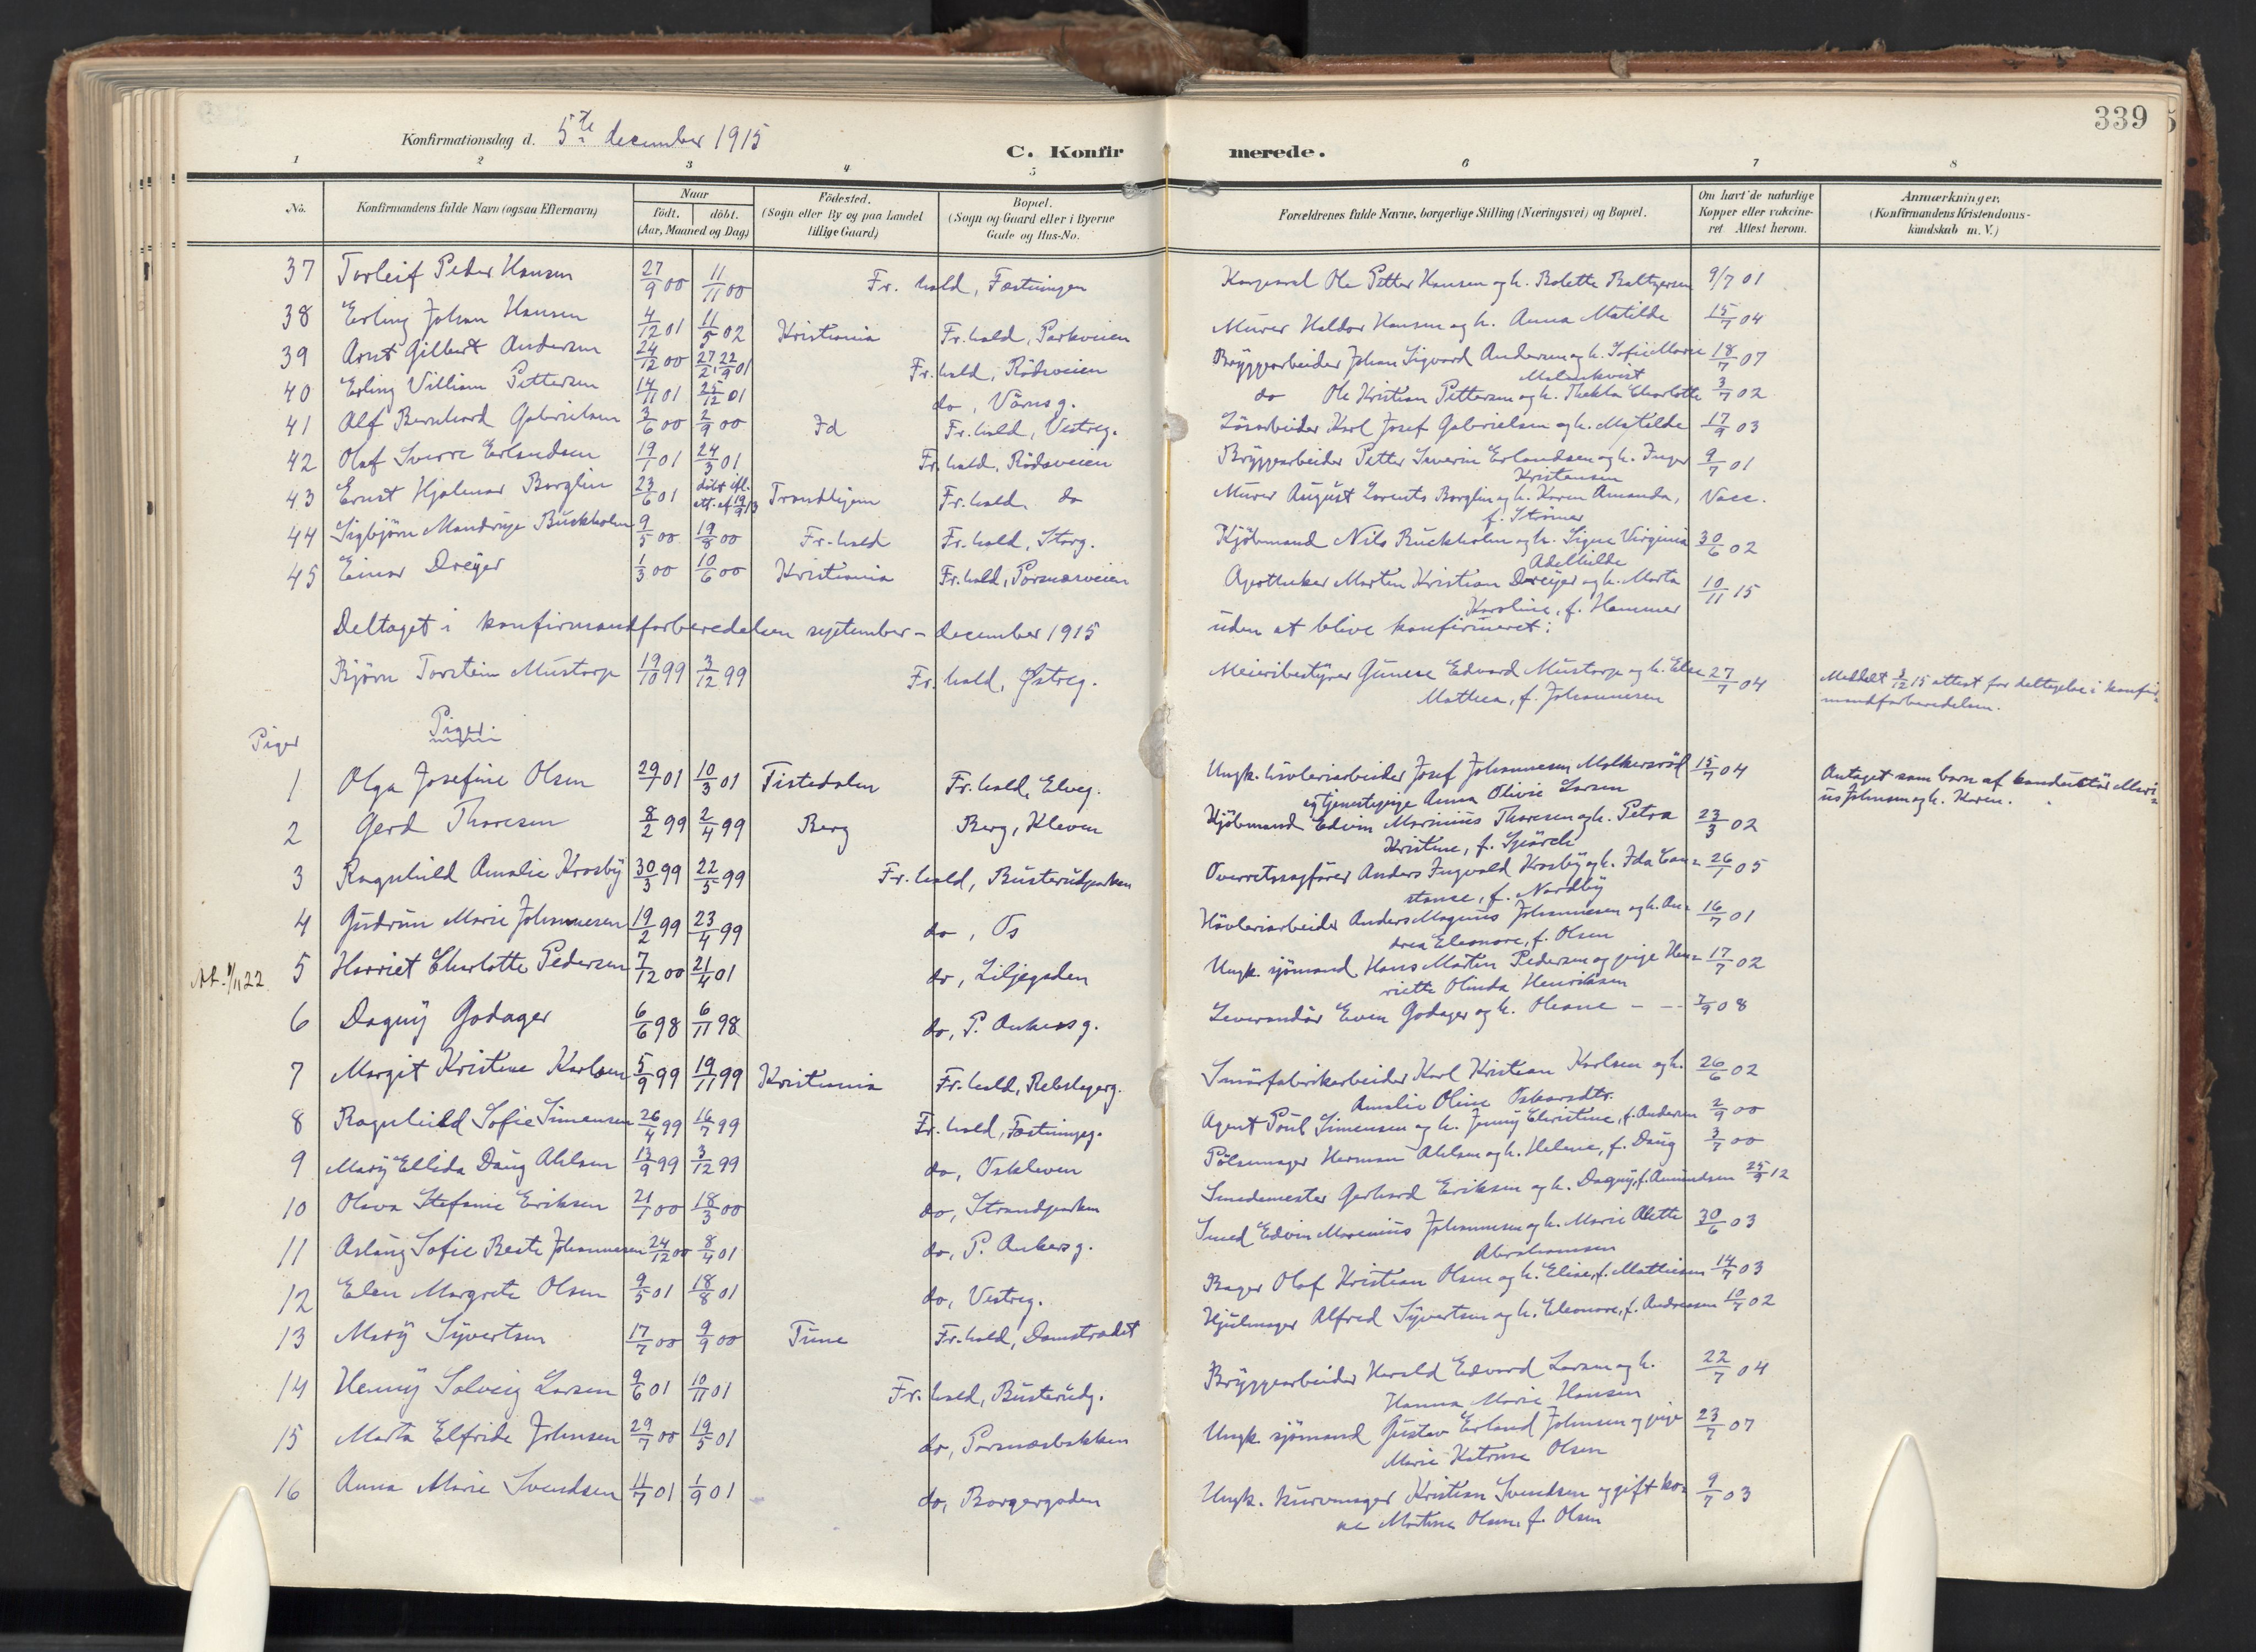 339
Konfirmationsdag d. 5te december 1915
C. Konfirmerede.
1 2 3 4 5 6 7 8
No. Konfirmandens fulde Navn (ogsaa Efternavn) Naar født. døbt. (Aar, Maaned og Dag) Fødested. (Sogn eller By og paa Landet tillige Gaard) Bopæl. (Sogn og Gaard eller i Byerne Gade og Hus-No. Forældrenes fulde Navne, borgerlige Stilling (Næringsvei) og Bopæl. Om havt de naturlige Kopper eller vakcineret Attest herom. Anmærkninger. (Konfirmandens Kristendomskundskab m. V.)
37 Torleif Peder Hansen 27/9 00 11/11 00 Fr.hald, Fæstningen Korporal Ole Petter Hansen og h. Bolette Baltzersen 9/7 01
38 Erling Johan Hansen 4/12 01 11/5 02 Kristiania Fr.hald, Parkveien Murer Haldor Hansen og h. Anna Matilde 15/7 04
39 Arnt Gilbert Andersen 24/12 00 27/2, 22/9 01 Fr.hald, Rødsveien Bryggearbeider Johan Sigvard Andersen og h. Sofie Marie Malmkvist 18/7 07
40 Erling Villiam Pettersen 14/11 01 25/12 01 do, Värnsg. do Ole Kristian Pettersen og h. Thekla Charlotte 3/7 02
41 Alf Bernhard Gabrielsen 3/6 00 2/9 00 Id Fr.hald, Vestreg. Løsarbeider Karl Josef Gabrielsen og h. Matilde 17/9 03
42 Olaf Sverre Erlandsen 19/1 01 24/3 01 Fr.hald, Rødsveien Bryggearbeider Petter Severin Erlandsen og h. Inger Kristensen 9/7 01
43 Ernst Hjalmar Borglin 23/6 01 døbt ifl. att. af 19/9 13 Trondhjem Fr.hald. do Murer August Lorents Borglin og h. Karen Amanda, f. Strømer Vacc.
44 Sigbjørn Mandrup Buckholm 9/5 00 19/8 00 Fr.hald Fr.hald, Storg. Kjøbmand Nils Buckholm og h. Signe Virginia Adelhilde 30/6 02
45 Einar Dreyer 1/3 00 10/6 00 Kristiania Fr.hald, Porsnæsveien Apotheker Morten Kristian Dreyer og h. Marta Karoline, f. Hammer 10/11 15
Deltaget i konfirmandforberedelsen september - december 1915 uden at blive konfirmeret:
Bjørn Torstein Mustorp 19/10 99 3/12 99 Fr.hald, Østreg. Meieribestyrer Gunerius Edvard Mustorp og h. Else Mathea, f. Johannesen 27/7 04 Meddelt 3/12 15 attest for deltagelse i konfirmandforberedelsen.
Piger Piger:
1 Olga Josefine Olsen 29/1 01 10/3 01 Tistedalen Fr.hald, Elveg. Ungk. høvleriarbeider Josef Johannesen Molkersrød og tjenestepige Anna Olivie Larsen 15/7 04 Antaget som barn af konduktør Marius Johnsen og h. Karen.
2 Gerd Thoresen 8/2 99 2/4 99 Berg Berg, Kleven Kjøbmand Edvin Marinius Thoresen og h. Petra Kristine, f. 23/3 02
3 Ragnhild Amalie Krosby 30/3 99 22/5 99 Fr.hald, Busterudparken Overretssagfører Anders Ingvald Krosby og h. Ida Constanse, f. Nordby 26/1 05
4 Gudrun Marie Johannesen 19/2 99 23/4 99 do, Os Høvleriarbeider Anders Magnus Johannesen og h. Andrea Eleonore, f. Olsen 16/7 01
Att. 1/11 22 5 Harriet Charlotte Pedersen 7/12 00 21/4 01 do, Liljegaden Ungk. sjømand Hans Martin Pedersen og pige Henriette Olinda Henriksen 17/7 02
6 Dagny Godager 6/6 98 6/11 98 do, P. Ankersg. Leverandør Even Godager og h. Oleane - - - 7/9 08
7 Margit Kristine Karlsen 5/9 99 19/11 99 Kristiania Fr.hald, Rebslagerg. Smørfabrikarbeider Karl Kristian Karlsen og h. Amalie Oline Oskarsdtr. 26/6 02
8 Ragnhild Sofie Simensen 26/4 99 16/7 99 Fr.hald, Fæstningsg. Agent Poul Simensen og h. Jenny Christine, f. Andersen 2/9 00
9 Mary Ellida Daug Ahlsen 13/9 99 3/12 99 do, Oskleven Pølsemager Herman Ahlsen og h. Helene, f. Daug 3/7 00
10 Olava Stefanie Eriksen 21/1 00 18/3 00 do, Strandparken Smedemester Gerhard Eriksen og h. Dagny, f. Amundsen 25/9 12
11 Aslaug Sofie Beate Johannesen 24/12 00 8/4 01 do, P. Ankersg. Smed Edvin Marenius Johannesen og h. Marie Alette Abrahamsen 30/6 03
12 Elen Margrete Olsen 9/5 01 18/8 01 do, Vestreg. Bager Olaf Kristian Olsen og h. Elise, f. Mathiesen 14/7 03
13 Mary Syvertsen 17/7 00 9/9 00 Tune Fr.hald, Damstrædet Hjulmager Alfred Syvertsen og h. Eleonore, f. Andreassen 10/7 02
14 Henny Solveig Larsen 9/6 01 10/11 01 Fr.hald, Busterudg. Bryggearbeider Harald Edvard Larsen og h. Hanna Marie Hansen 22/7 04
15 Marta Elfride Johnsen 29/7 00 19/5 01 do, Porsnæsbakken Ungk. sjømand Gustav Erland Johnsen og pige Marie Katrine Olsen 23/7 07
16 Anna Marie Svendsen 11/7 01 1/9 01 do, Borgergaden Ungk. kurvmager Kristian Svendsen og gift kone Martine Olsen f. Olsen 9/7 03